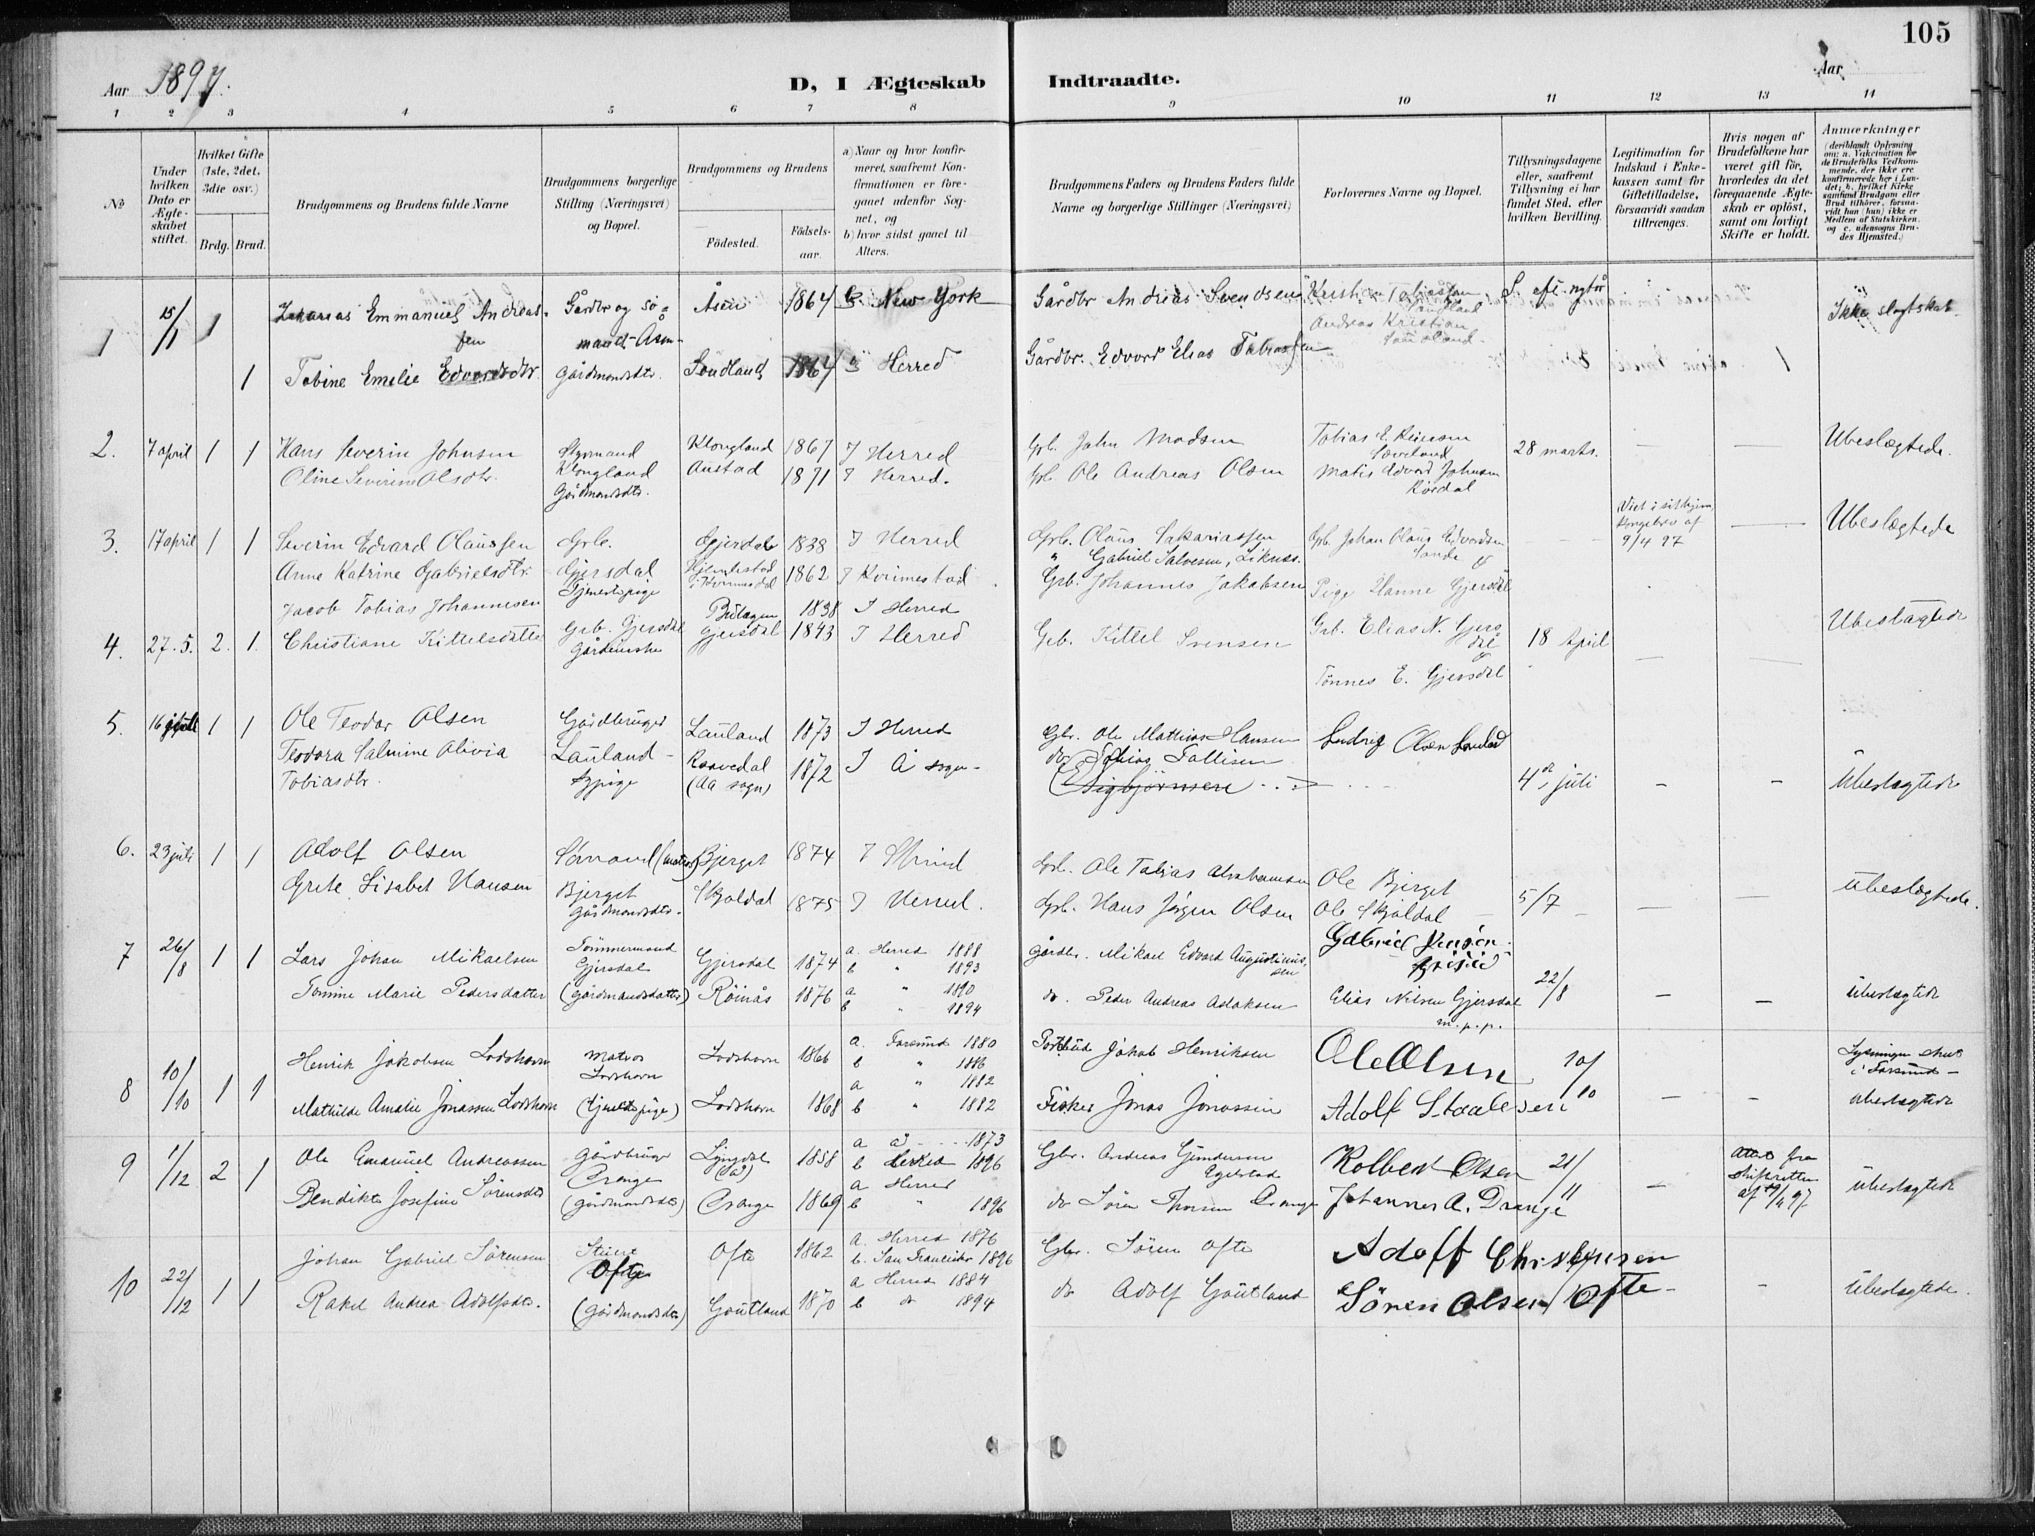 105
Aar 1897.
D, I Ægteskab Indtraadte.
Aar
1 2 3 4 5 6 7 8 9 10 11 12 13 14
No
Under hvilken Dato er Ægteskabet stiftet.
Hvilket Gifte (1ste, 2det, 3die osv.)
Brdg. Brud.
Brudgommens og Brudens fulde Navne
Brudgommens borgerlige Stilling (Næringsvei) og Bopæl.
Brudgommens og Brudens
Fødested.
Fødselsaar.
a) Naar og hvor konfirmeret, saafremt Konfirmationen er foregaaet udenfor Sognet, og
b) hvor sidst gaaet til Alters.
Brudgommens Faders og Brudens Faders fulde Navne og borgerlige Stillinger (Næringsvei)
Forlovernes Navne og Bopæl.
Tillysningsdagene eller, saafremt Tillysning ei har fundet Sted, efter hvilken Bevilling.
Legitimation for Indskud i Enkekassen samt for Giftetilladelse, forsaavidt saadan tiltrænges.
Hvis nogen af Brudefolkene har været gift før, hvorledes da det foregaaende Ægteskab er opløst, samt om lovligt Skifte er holdt.
Anmærkninger (deriblandt Oplysning om: a. Vakcination for de Brudefolks Vedkommende, der ikke ere konfirmerede her i Landet; b. hvilket Kirkesamfund Brudgom eller Brud tilhører, forsaavidt han (hun) ikke er Medlem af Statskirken, og c. udensogns Brudes Hjemsted.)
1 15/1 1 Zakarias Emmanuel Andreassen Gårdbr og Sømand Åsen Åsen 1864 New York Gårdbr Andreas Svendsen Andreas Kristian S. aft. nytår Ikke slægtskab
1 Tobine Emelie Edvardsdtr. Gårdmandsdtr. Søudland 1864 Herred Gårdbr. Edvard Elias Tobiassen
2. 7 april 1 1 Hans Severin Johnsen Styrmand Klongland Klongland 1867 I Herred Gb. John Madsen Tobias 28 marts. Ubeslægtede.
Oline Severine Olsdtr. Gårdmandsdtr. Austad 1871 I Herred. Gb. Ole Andreas Olsen Matis Edvard Johnsen Rørdal
3. 17 april 1 1 Severin Edvard Olaussen Grb. Gjersdal Gjersdal 1838 I Herred Grb. Olaus Sakariassen Gb. Johan Olaus Edvardsen Sande og Viet i sit hjem, Kongebrev af 9/4 97 Ubeslægtede
Anne Katrine Gabrielsdtr. Tjenestepige 1862 I Kvinestad " Gabriel Salvesen, Liknes. Pige Hanne Gjersdal
Jacob Tobias Johannesen 1838 I Herred Grb. Johannes Jakobsen
4. 27.5. 2. 1. Christiane Kittelsdatter Grb. Gjersdal Gjersdal 1843 I Herred Grb. Kittel Svensen Grb. Elias N. Gjersdal og 18 April Ubeslægtede
Tønnes E. Gjersdal
5. 16 juli 1 1 Ole Teodor Olsen Gårdbruger Lauland Lauland 1873 I Herred Gbr. Ole Mathias Hansen Ludvig Olsen
Teodora Salmine Olivia Tobiasdtr. Sypige (Aa sogn) 1872 I Å sogn do Tobias Tallisen
Sigbjørnsen 4de juli Ubeslægtede
6. 23 juli 1 1 Adolf Olsen Sømand (matros) Bjerget 1874 I Herred Grb. Ole Tobias Abrahamsen Ole Bjerget 5/7 Ubeslægtede.
Grete Lisabet Hansen Bjerget Gårdmandsdtr. Skjoldal 1875 I Herred. Grb. Hans Jörgen Olsen Ole Skjoldal
7 26/8 1 1 Lars Johan Mikaelsen Tømmermand Gjersdal Gjersdal 1874 a. Herred 1888 b " 1893 Gårdbr. Mikael Edvard Augustinussen Gabriel Jensen 22/8 Ubeslægtede
Tomine Marie Pedersdatter (gårdmandsdatter) Röinås 1876 a " 1890 b " 1894 do. Peder Andreas Adaksen Elias Nilsen Gjersdal m.p.p.
8 10/10 1 1 Henrik Jakobsen Lodshavn Matros Lodshavn Lodshavn 1866 a. Farsund 1880 b " 1886 Jakob Henriksen Ole Olsen 10/10 i Farsund
Mathilde Amalie Jonassen Lodshavn (tjenestepige) Lodshavn 1868 a " 1882 b " 1882 Fisker Jonas Jonassen Adolf Staalesen Ubeslægtede
9 1/12 2 1 Ole Emanuel Andreassen Gårdbruger Drange Lyngdal (Å) 1858 a Å 1873 b Herred 1896 Gbr. Andreas Gundersen Egelstad Kolbent Olsen 21/11 Attest fra skifteretten Ubeslægtede
Bendikte Josefine Sörensdtr (gårdmandsdtr) Drange 1869 a Herred b " 1896 do Sören Thorsen Drange Johannes A. Drange
10 22/12 1 1 Johan Gabriel Sörensen Ofte Ofte 1862 a. Herred 1876 b. San Francisko 1896 Gbr. Sören Ofte Adolf Christensen Ubeslægtede.
Rakel Andrea Adolfsdtr. (Gårdmandsdtr) Goutland 1870 a Herred 1884 b do 1894 do Adolf Goutland Sören Olsen Ofte